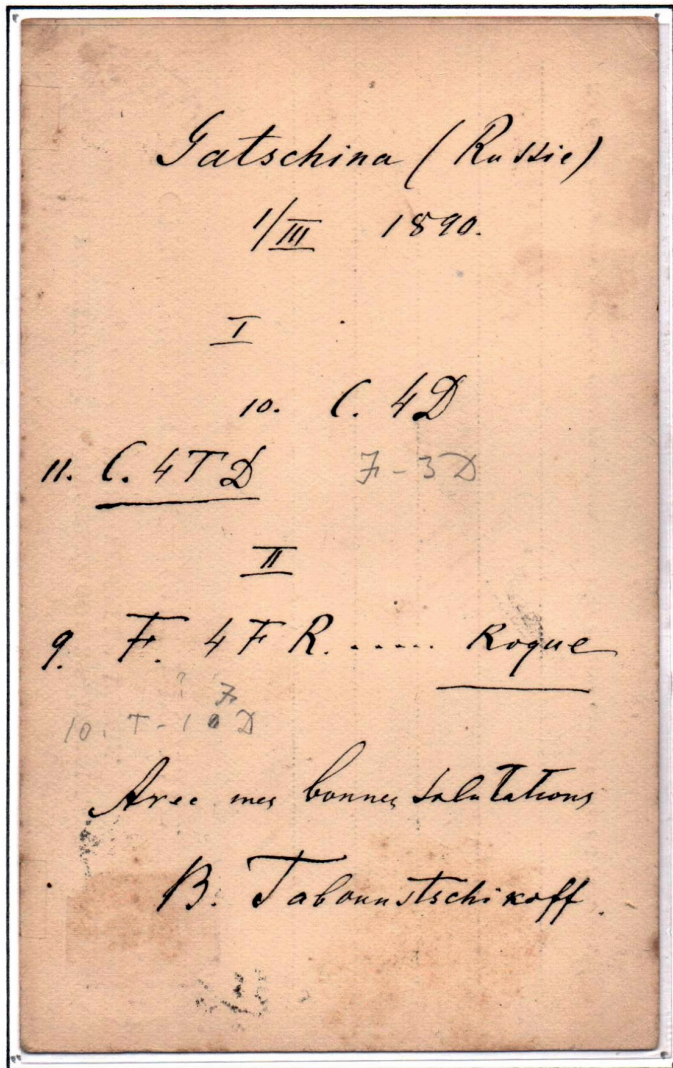 Gatschina (Russie)
1/III 1890.
I
10. C. 4D
11. C. 4TD F-3D
II
9. F. 4FR. ..... Roque
? F
10. T-1 D
Avec mes bonnes salutations
B. Tabounstschikoff.